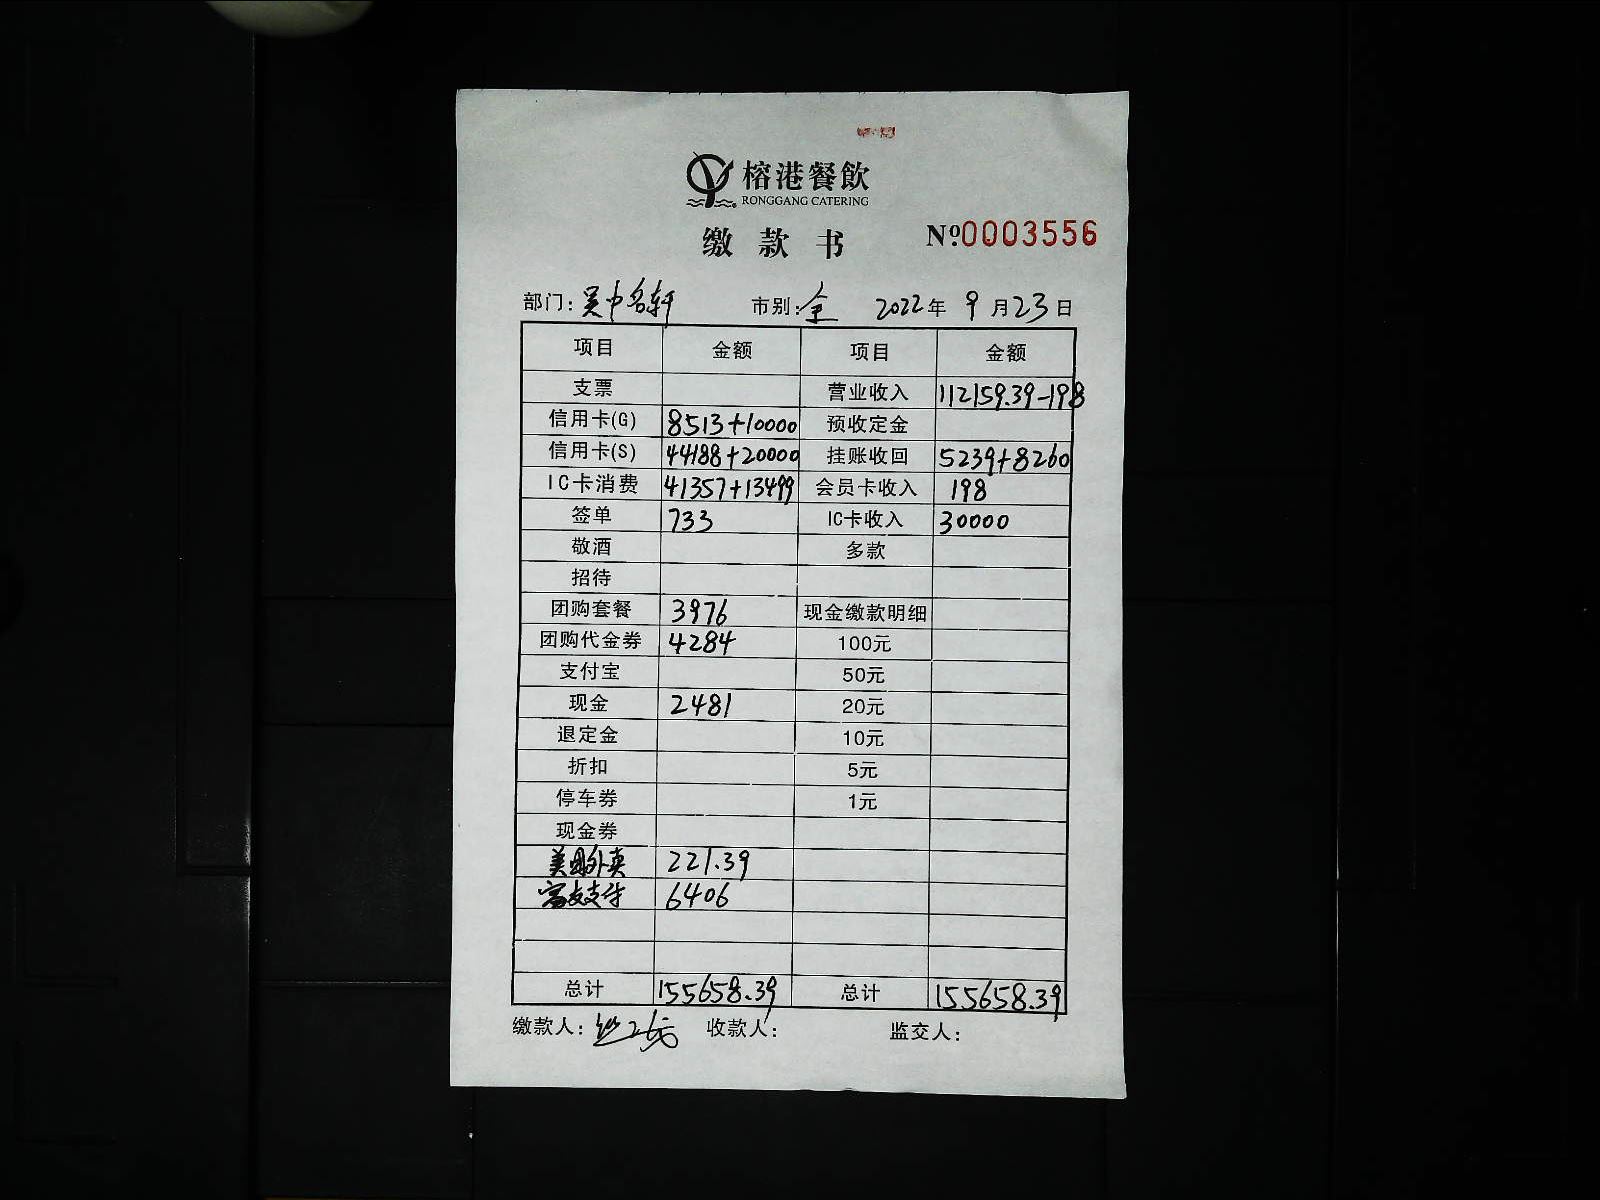 榕港餐飲
RONGGANG CATERING
缴款书 №0003556
部门：吴中名轩 市别：全 2022年9月23日
项目 金额 项目 金额
支票 营业收入 112159.39-198
信用卡(G) 8513+10000 预收定金
信用卡(S) 44188+20000 挂账收回 5239+8260
IC卡消费 41357+13499 会员卡收入 198
签单 733 IC卡收入 30000
敬酒 多款
招待
团购套餐 3976 现金缴款明细
团购代金券 4284 100元
支付宝 50元
现金 2481 20元
退定金 10元
折扣 5元
停车券 1元
现金券
美团外卖 221.39
富友支付 6406
总计 155658.39 总计 155658.39
缴款人： 收款人： 监交人：